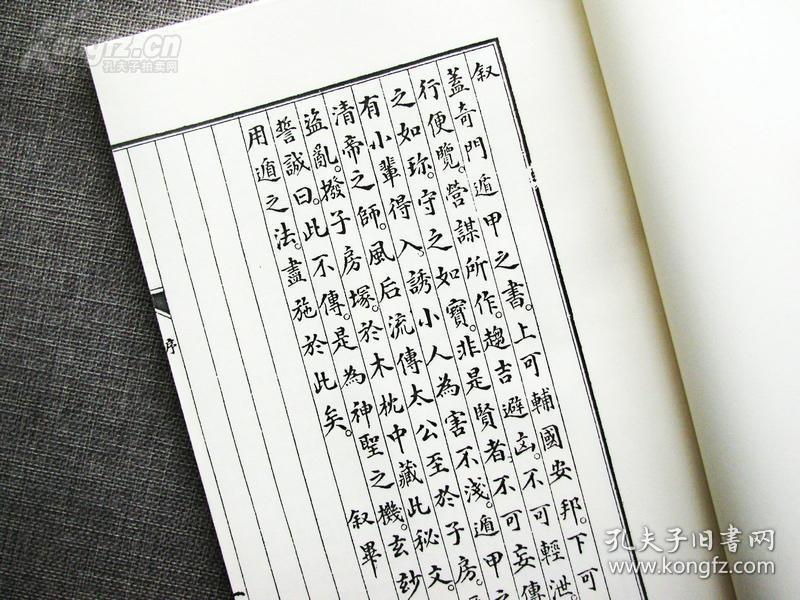 叙
蓋奇門遁甲之書。上可輔國安邦。下可
行便覽。營謀所作。趨吉避凶。不可輕泄。
之如珎。守之如寶。非是賢者不可妄傳
有小輩得入。誘小人為害不淺。遁甲之
清帝之師。風后流傳太公至於子房。
盜亂。撥子房塚。於木枕中藏此秘文。
誓誠曰。此不傳。是為神聖之機。玄玅
用遁之法。盡施於此矣。 叙畢
序
Kongfz.cn
孔夫子拍卖网
孔夫子旧书网
www.kongfz.com